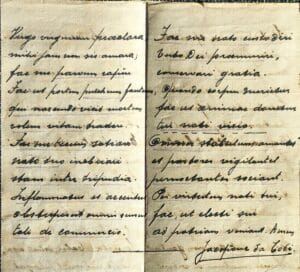 Virgo virginum praeclara
mihi jam non sis amara,
fac me parvum rapere
Fac ut portem pulchrum fantem,
qui nascendo vicit mortem
volens vitam tradere.
Fac me tecum satiari
nato tuo inebriari
stans inter tripudia.
Inflammatus et accensus
obstupescit omnis sensus
tali de commercio.
Fac me nato custodiri
Verbo Dei praemuniri,
conservari gratia.
Quando corpus morietur
fac ut animae donetur
tui nati visio.
Omnes stabulum amantes
et pastores vigilantes
pernoctantes sociant.
Per virtutem nati tui,
fac, ut electi sui
ad patriam veniant. Amen
Jacopone da Todi